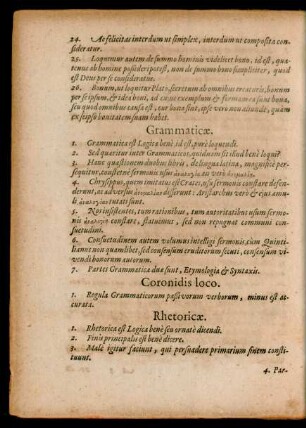 24. At felicitas interdum ut simplex, interdum ut composita con-
sideratur.
25. Loquimur autem de summo hominis videlicet bono, id est, qua-
tenus ab homine possideri potest, non de summo bono simpliciter, quod
est Deus per se consideratus.
26. Bonum, ut loquitur Plato, secretum ab omnibus ce nomen
per se ipsum, & idea boni, ad cuius exemplum & formam cetera bona,
seu quod omnibus est, cur bona sint, ipse vero non aliunde, quam
ex seipso bonitatem suam habet.
Grammaticæ.
1. Grammatica est Logica benè id est, purè loquendi.
2. Sed quaritur inter Grammaticos, quidnam sit illud benè loqui?
3. Hanc quæstionem duobus libris, de lingua latina, magnifice per-
sequitur, constetne sermonis usus
4. Chrysippus, quem imitatus est Crates, usu sermonis constare defen-
derunt, at adversus disserunt: Aristarchus vero & ejus amici
tutati sunt.
5. Nos insistentes, tum rationibus, tum autoritatibus usum sermo-
nis constare, statuimus, sed non repugnat communi con-
suetudini.
6. Consuetudinem autem volumus intelligi sermonis, cum Quinti-
liano non quamlibet, sed consensum eruditorum sicuti, consensum viven-
di bonorum morum.
7. Partes Grammatica dua sunt, Etymologia & Syntaxis.
Coronidis loco.
1. Regula Grammaticorum passivorum verborum, minus est ac-
curata.
Rhetoricæ.
1. Rhetorica est Logica benè seu ornatè dicendi.
2. Finis principalis est benè dicere.
3. Malè igitur faciunt, qui persuadere primarium finem consti-
tuunt.
4. Par-